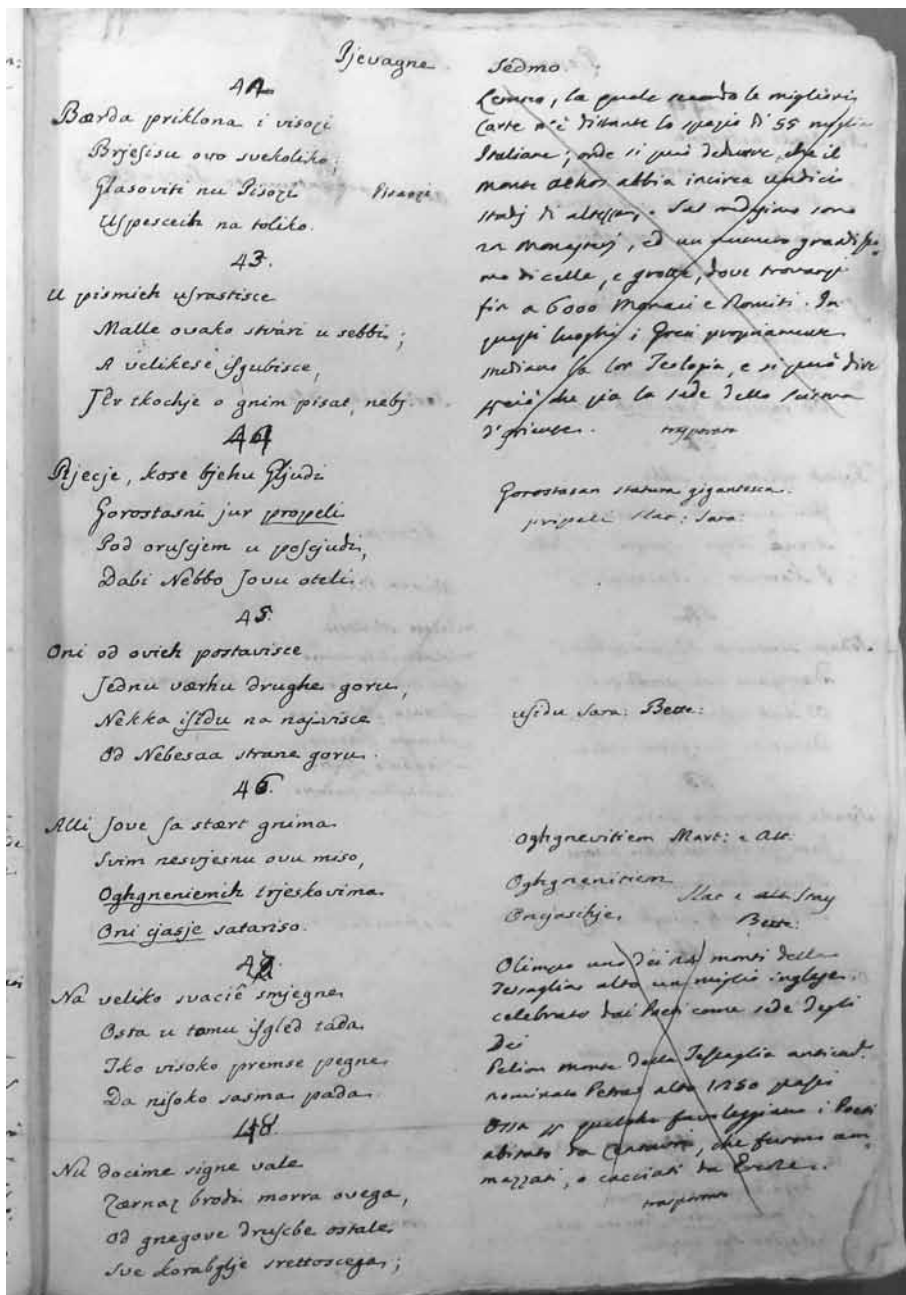 Pjevagne
42
Bærda priklona i visozi
Brjesisu ovo svekoliko;
Glasoviti nu Pisozi
Uspesceih na toliko.
43.
U pismieh usrastisce
Malle ovako stvari u sebbi;
A velikese isgubisce,
Jer tkochje o gnim pisat, nebj.
44
Rjecje, kose bjehu Gljudi
Gorostasni jur propeli
Pod oruscjem u poscjudi,
Dabi Nebbo Jovu oteli.
45.
Oni od ovieh postavisce
Jednuværhu drughe goru,
Nekka isidu na najvisce
Od Nebesaa strane goru.
46.
Alli Jove sa stært gnima
Svim nesvjesnu ovu miso,
Oghgneniemih trjeskovima
Oni cjasje satariso.
47.
Na veliko svacie smjegne
Osta u tomu isgled tada
Tko visoko premse pegne
Da nisoko sasma pada.
48.
Nu docime signe vale
Zærnaz brodi morra ovega,
Od gnegove druscbe ostale
Sve korabglje srettoscega;
Sedmo
Lemno, la quale secondo le migliori
Carte n'è distante lo spazio di 55 miglia
Italiane; onde si può dedurre, che il
monte Athos abbia incirca undici
stadj di altezza. Sul
22 Monasterj, ed un numero grandissi-
mo di celle, e grotte, dove trovansi
fin a 6000 Monaci e Romiti. In
questi luoghi i Greci propriamente
studiano la lor Teologia, e si può dire
che sia la sede della scienza
d'oriente. trasportato
Gorostasan statura gigantesca.
pripeli Slat: Sara:
usidu Sara: Bette:
Oghgnevitiem Mart: e Alt:
Oghgnenitiem
Slat e Stay
Onycasitje. Bette:
Olimpo uno dei 24 monti della
Tessaglia alto un miglio inglese.
celebrato dai Poeti come sede degli
Dei
Pelion monte della Tessaglia anticad.
nominato Petras alto 1250 passi
Ossa favoleggiano i Poeti
abitato da Centauri, che furono am-
mazzati, o cacciati da Ercole.
trasportato